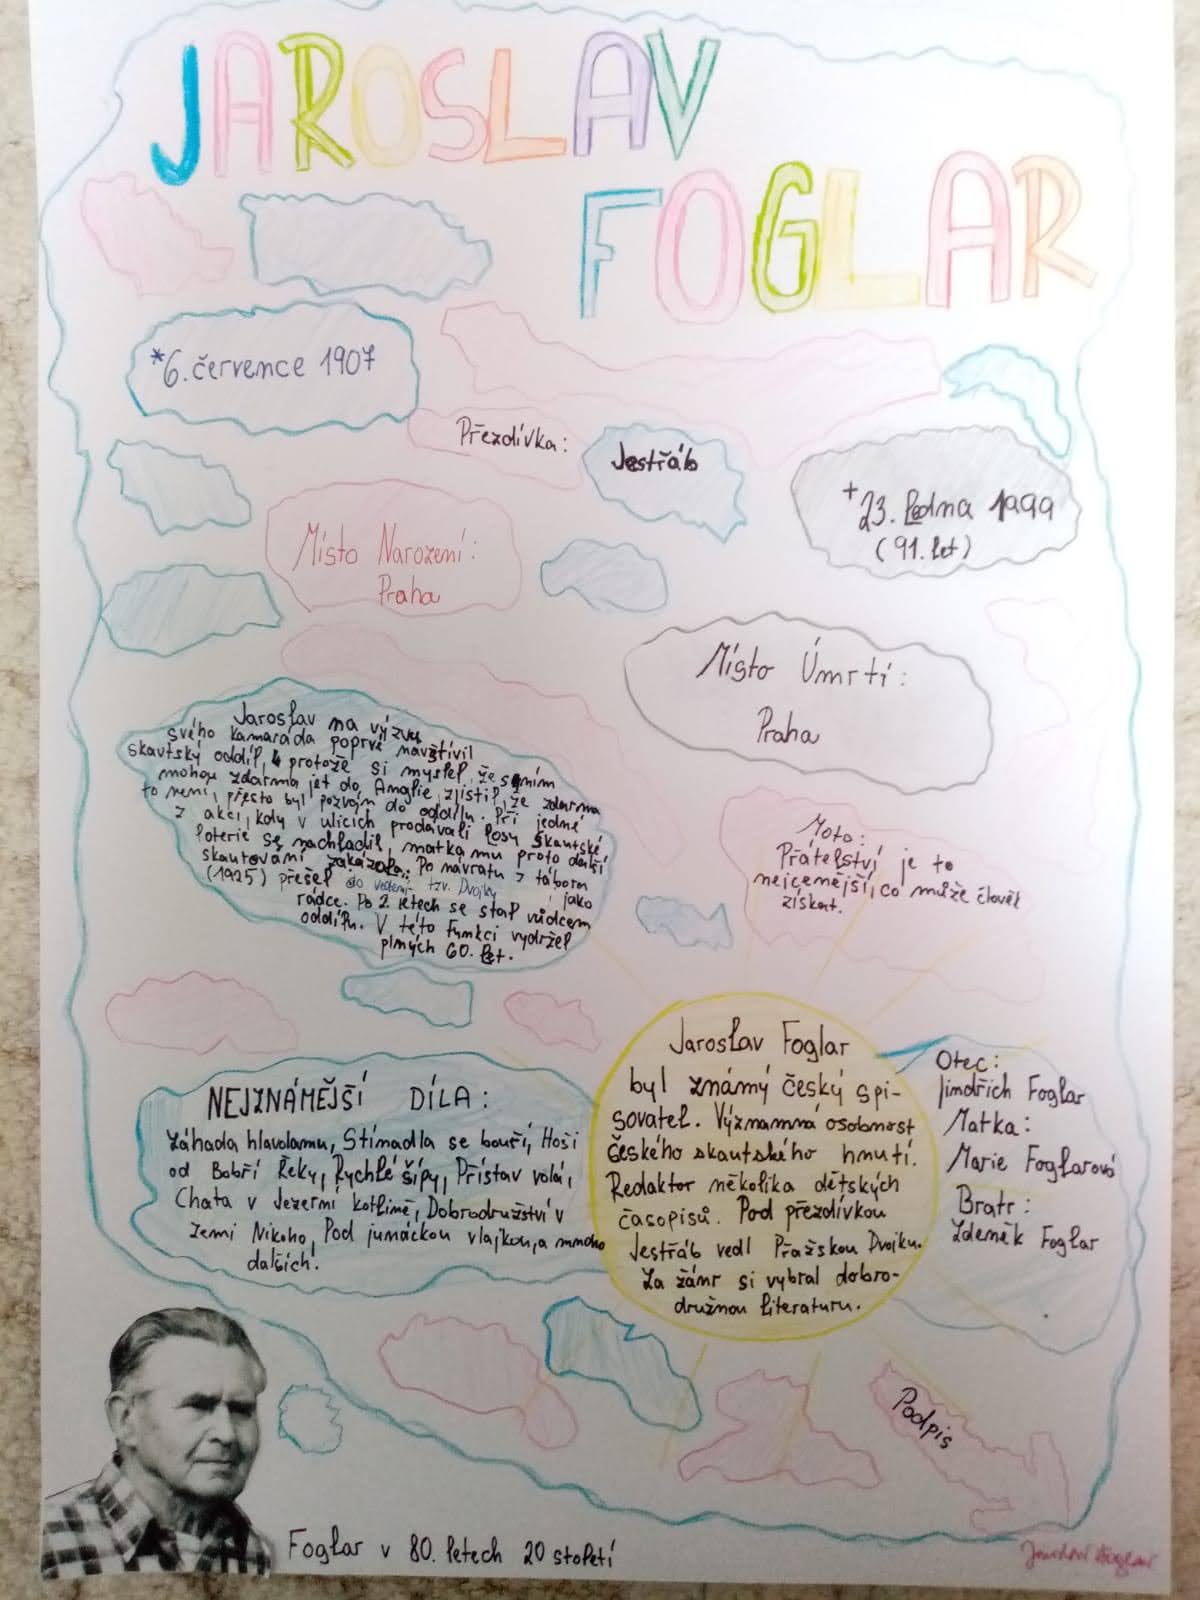 JAROSLAV
FOGLAR
*6. července 1907
Přezdívka:
Jestřáb
+ 23. Ledna 1999
(91. let)
Místo Narození:
Praha
Místo Úmrtí:
Praha
Jaroslav na výzvu
svého kamaráda poprvé navštívil
skautský oddíl, protože si myslel, že s ním
mohou zdarma jet do Anglie, zjistil, že zdarma
to není, přesto byl pozván do oddílu. Při jedné
z akcí, kdy v ulicích prodávali losy skautské
loterie se nachladil, matka mu proto další
skautování zakázala. Po návratu z tábora
(1925) přešel do vedení tzv. Dvojky jako
rádce. Po 2. letech se stal vůdcem
oddílu. V této funkci vydržel
plných 60. let.
Moto:
Přátelství je to
nejcenější, co může člověk
získat.
NEJZNÁMĚJŠÍ DÍLA:
Záhada hlavolamu, Stínadla se bouří, Hoši
od Bobří Řeky, Rychlé šípy, Přístav volá,
Chata v Jezerní kotlině, Dobrodružství v
zemi Nikoho, Pod junáckou vlajkou, a mnoho
dalších!
Jaroslav Foglar
byl známý český spi-
sovatel. Významná osobnost
českého skautského hnutí.
Redaktor několika dětských
časopisů. Pod přezdívkou
Jestřáb vedl Pražskou Dvojku.
Za žánr si vybral dobro-
družnou literaturu.
Otec:
Jindřich Foglar
Matka:
Marie Foglarová
Bratr:
Zdeněk Foglar
Podpis
Foglar v 80. letech 20 století
Jaroslav Foglar